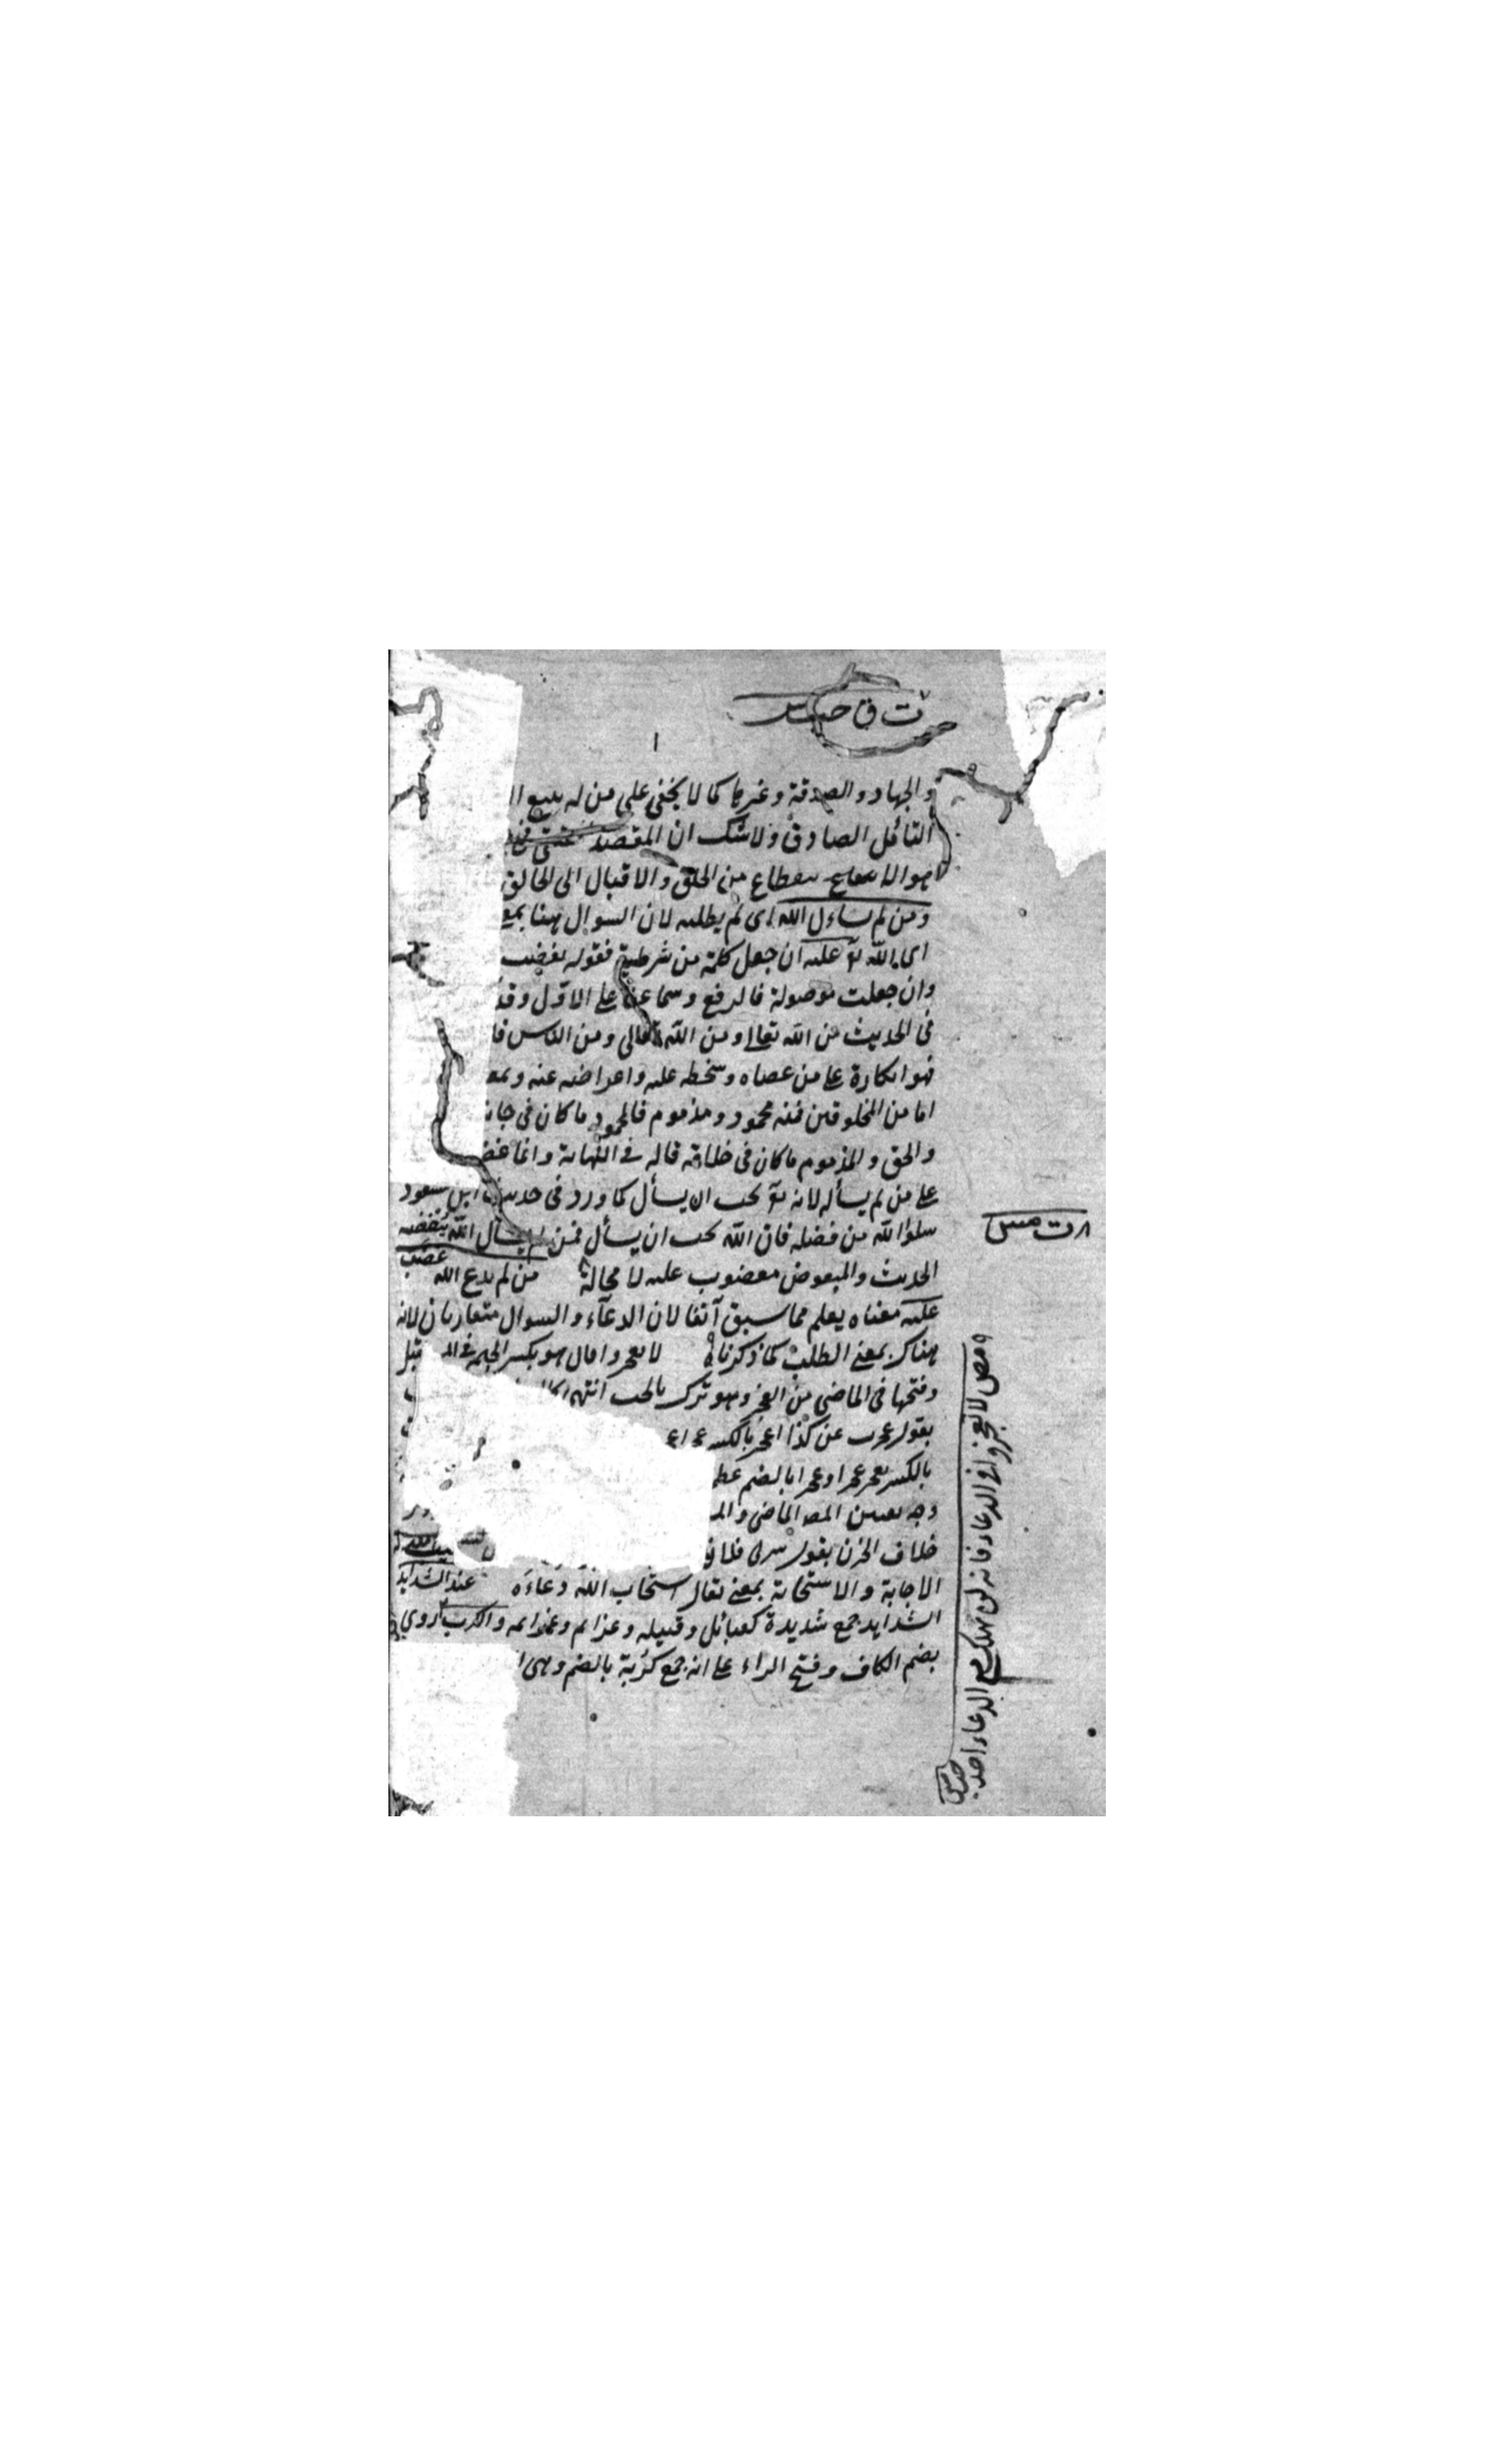 ت ق حب مس
١
والجهاد والصدقة وغيرها كما لا يخفى على من له
التأمل الصادق ولا شك ان المقصد
هو الانقطاع من الخلق والاقبال الى الخالق
ومن لم يساءل الله اى لم يطلبه لان السوال ههنا بمع
اى الله تع عليه ان جعل كلمة من شرطية فقوله يغضب
وان جعلت موصولة فالرفع وسماعنا على الاول وقد
فى الحديث من الله تعالى ومن الله تعالى ومن الناس فا
فهو انكارة على من عصاه وسخطه عليه واعراضه عنه ومع
اما من المخلوقين فمنه محمود ومذموم فالمحمود ما كان فى جا
والحق والمذموم ما كان فى خلافه قاله فى النهاية وانما غضب
على من لم يسأله لانه تع يحب ان يسأل كما ورد فى حديث ابن مسعود
سلوا الله من فضله فان الله يحب ان يسأل فمن لم يسأل الله يبغضه
الحديث والمبغوض مغضوب عليه لا محالة من لم يدع الله غضب
عليه معناه يعلم مما سبق آنفا لان الدعآء والسوال متقاربان لانه
هناك بمعنى الطلب كما ذكرناه لا تعجزوا قال هو بكسر الجيم فى
وفتحها فى الماضى من العجز وهو ترك ما يجب انتهى
يقول عجزت عن كذا اعجز بالكسر
بالكسر تعجز عجزا وعجزا بالضم عظم
وجه الماضى
خلاف الحزن يقول سرنى فلان
الاجابة والاستجابة بمعنى يقال استجاب الله دعاءه عند الشدايد
الشدايد جمع شديدة كقبائل وقبيله وعزائم وعزائمه والكرب روي
بضم الكاف وفتح الراء على انه جمع كربة بالضم وهى
٨ ت مس
٩ مص لا تعجزوا فى الدعاء فانه لن يهلك مع الدعاء احد
حب مس